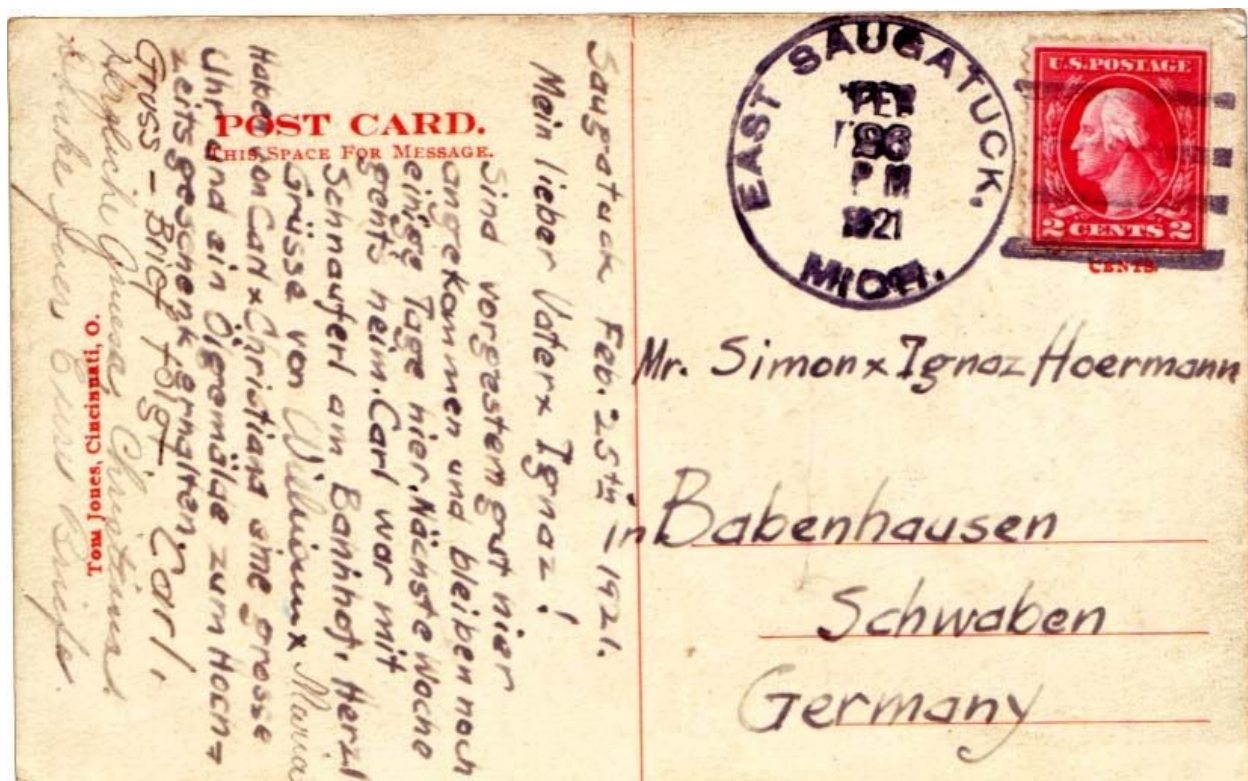 POST CARD.
THIS SPACE FOR MESSAGE.
Saugatuck Feb. 25th 1921.
Mein lieber Vater x Ignaz!
Sind vorgestern gut hier
angekommen und bleiben noch
einige Tage hier. Nächste Woche
gehts heim. Carl war mit
Schnauferl am Bahnhof. Herzl
Grüsse von William x Maria
Haben von Carl x Christiana eine grosse
Uhr und ein Ölgemälde zum Hoch=
zeitsgeschenk erhalten.
Gruss - Brief folgt Carl,
Herzliche Gruesse, Christiana.
Danke fuer Eure Briefe.
Tom Jones, Cincinnati, O.
EAST SAUGATUCK,
FEB
26
PM
1921
MICH.
U.S. POSTAGE
2 CENTS 2
CENTS
Mr. Simon x Ignaz Hoermann
in Babenhausen
Schwaben
Germany